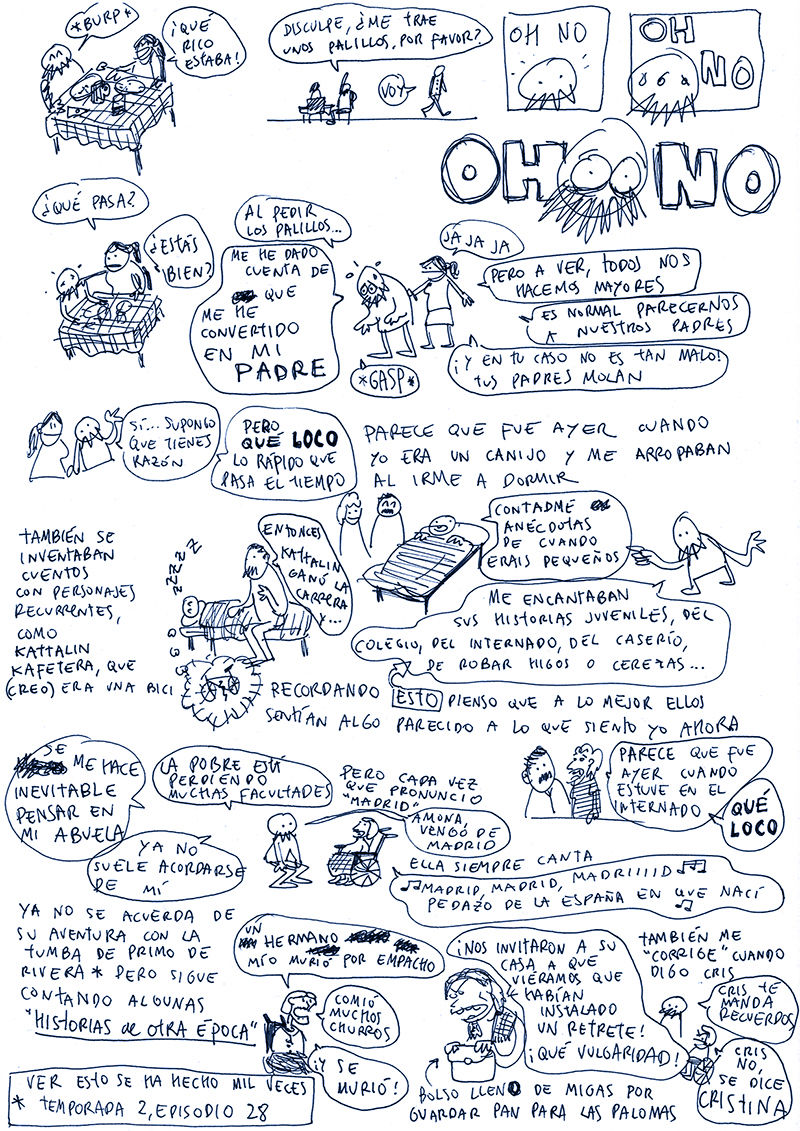 *BURP*
¡QUÉ
RICO
ESTABA!
DISCULPE, ¿ME TRAE
UNOS PALILLOS, POR FAVOR?
VOY
OH NO
OH
NO
OH NO
¿QUÉ PASA?
¿ESTÁS
BIEN?
AL PEDIR
LOS PALILLOS...
ME HE DADO
CUENTA DE
QUE
ME HE
CONVERTIDO
EN MI
PADRE
*GASP*
JA JA JA
PERO A VER, TODOS NOS
HACEMOS MAYORES
ES NORMAL PARECERNOS
A NUESTROS PADRES
¡Y EN TU CASO NO ES TAN MALO!
TUS PADRES MOLAN
SÍ... SUPONGO
QUE TIENES
RAZÓN
PERO
QUÉ LOCO
LO RÁPIDO QUE
PASA EL TIEMPO
PARECE QUE FUE AYER CUANDO
YO ERA UN CANIJO Y ME ARROPABAN
AL IRME A DORMIR
TAMBIÉN SE
INVENTABAN
CUENTOS
CON PERSONAJES
RECURRENTES,
COMO
KATTALIN
KAFETERA, QUE
(CREO) ERA UNA BICI
ZZZZZ
ENTONCES
KATTALIN
GANÓ LA
CARRERA
Y...
CONTADME
ANÉCDOTAS
DE CUANDO
ERAIS PEQUEÑOS
ME ENCANTABAN
SUS HISTORIAS JUVENILES, DEL
COLEGIO, DEL INTERNADO, DEL CASERÍO,
DE ROBAR HIGOS O CEREZAS...
RECORDANDO ESTO PIENSO QUE A LO MEJOR ELLOS
SENTÍAN ALGO PARECIDO A LO QUE SIENTO YO AHORA
PARECE QUE FUE
AYER CUANDO
ESTUVE EN EL
INTERNADO
QUÉ
LOCO
SE
ME HACE
INEVITABLE
PENSAR EN
MI ABUELA
LA POBRE ESTÁ
PERDIENDO
MUCHAS FACULTADES
YA NO
SUELE ACORDARSE
DE MÍ
PERO CADA VEZ
QUE PRONUNCIO
"MADRID"
AMONA,
VENGO DE
MADRID
ELLA SIEMPRE CANTA
♫MADRID, MADRID, MADRIIIIID♫
PEDAZO DE LA ESPAÑA EN QUE NACÍ
♫
YA NO SE ACUERDA DE
SU AVENTURA CON LA
TUMBA DE PRIMO DE
RIVERA* PERO SIGUE
CONTANDO ALGUNAS
"HISTORIAS de OTRA ÉPOCA"
UN
HERMANO
MÍO MURIÓ POR EMPACHO
COMIÓ
MUCHOS
CHURROS
¡Y SE
MURIÓ!
¡NOS INVITARON A SU
CASA A QUE
VIÉRAMOS QUE
HABÍAN
INSTALADO
UN RETRETE!
¡QUÉ VULGARIDAD!
BOLSO LLENO DE MIGAS POR
GUARDAR PAN PARA LAS PALOMAS
TAMBIÉN ME
"CORRIGE" CUANDO
DIGO CRIS
CRIS TE
MANDA
RECUERDOS
CRIS
NO,
SE DICE
CRISTINA
VER ESTO SE HA HECHO MIL VECES
* TEMPORADA 2, EPISODIO 28